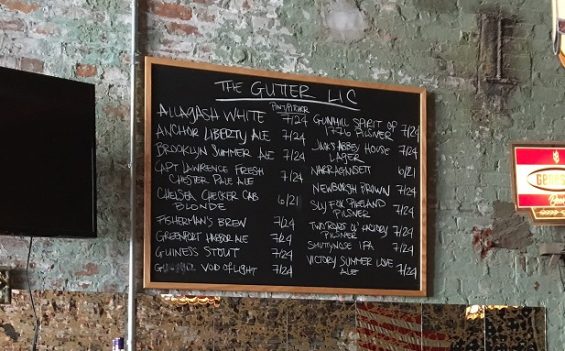 THE GUTTER LIC
PINT/PITCHER
ALLAGASH WHITE 7/24
ANCHOR LIBERTY ALE 7/24
BROOKLYN SUMMER ALE 7/24
CAPT LAWRENCE FRESH
CHESTER PALE ALE 7/24
CHELSEA CHECKER CAB
BLONDE 6/21
FISHERMAN'S BREW 7/24
GREENPORT HARBOR ALE 7/24
GUINESS STOUT 7/24
VOID OF LIGHT 7/24
GUNHILL SPIRIT OF
1776 PILSNER 7/24
JACK'S ABBEY HOUSE
LAGER 7/24
NARRAGANSETT 6/21
NEWBURGH BROWN 7/24
SLY FOX PIKELAND
PILSNER 7/24
TWO ROADS OL' FACTORY
PILSNER 7/24
SMUTTYNOSE IPA 7/24
VICTORY SUMMER LOVE
ALE 7/24